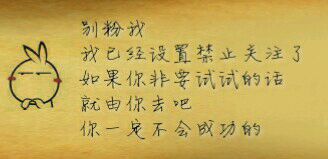 别粉我
我已经设置禁止关注了
如果你非要试试的话
就由你去吧
你一定不会成功的